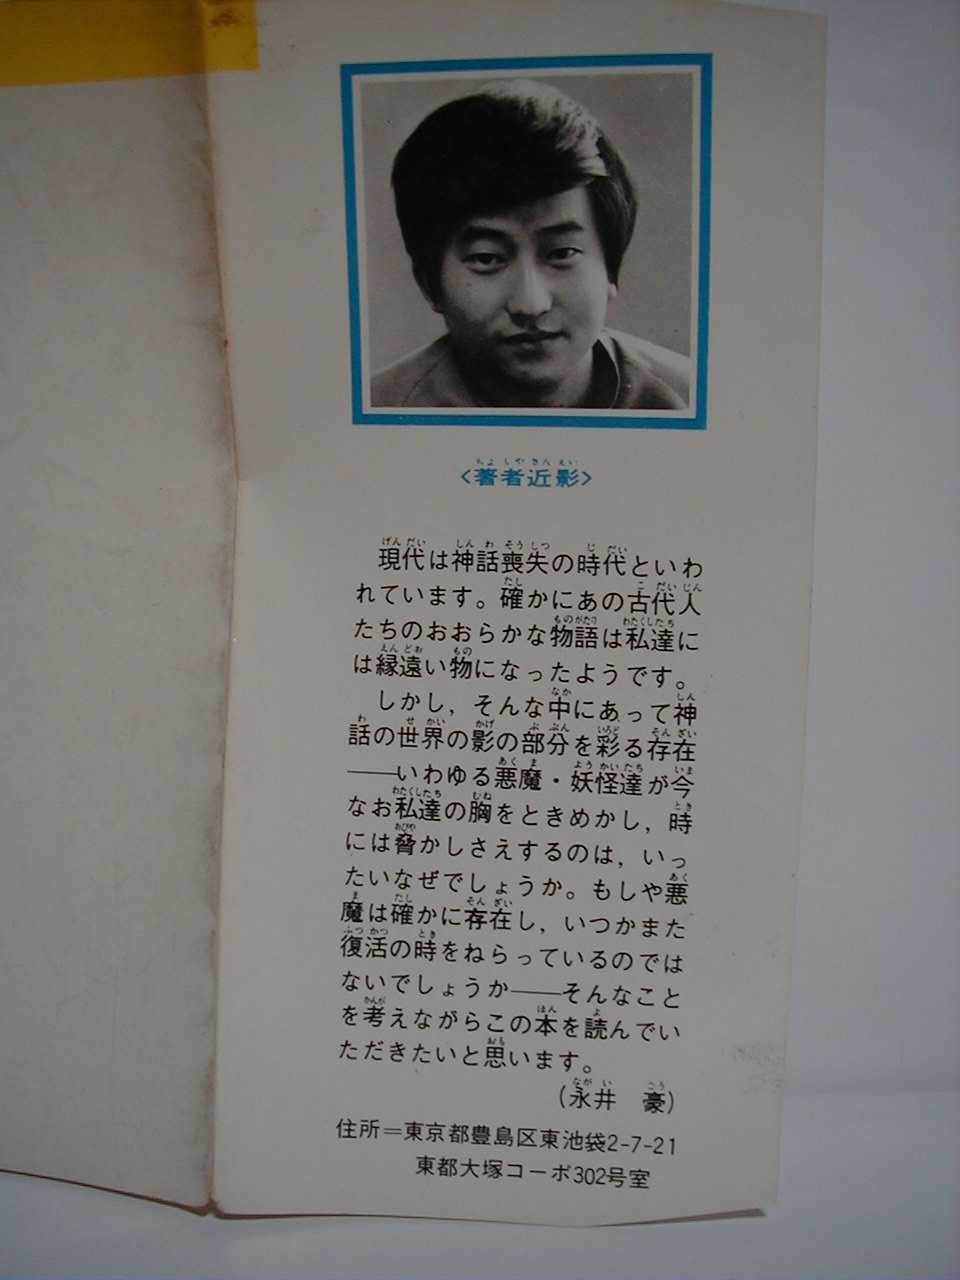 〈著者近影〉
現代は神話喪失の時代といわ
れています。確かにあの古代人
たちのおおらかな物語は私達に
は縁遠い物になったようです。
しかし，そんな中にあって神
話の世界の影の部分を彩る存在
――いわゆる悪魔・妖怪達が今
なお私達の胸をときめかし，時
には脅かしさえするのは，いっ
たいなぜでしょうか。もしや悪
魔は確かに存在し，いつかまた
復活の時をねらっているのでは
ないでしょうか――そんなこと
を考えながらこの本を読んでい
ただきたいと思います。
（永井　豪）
住所＝東京都豊島区東池袋2-7-21
東都大塚コーポ302号室